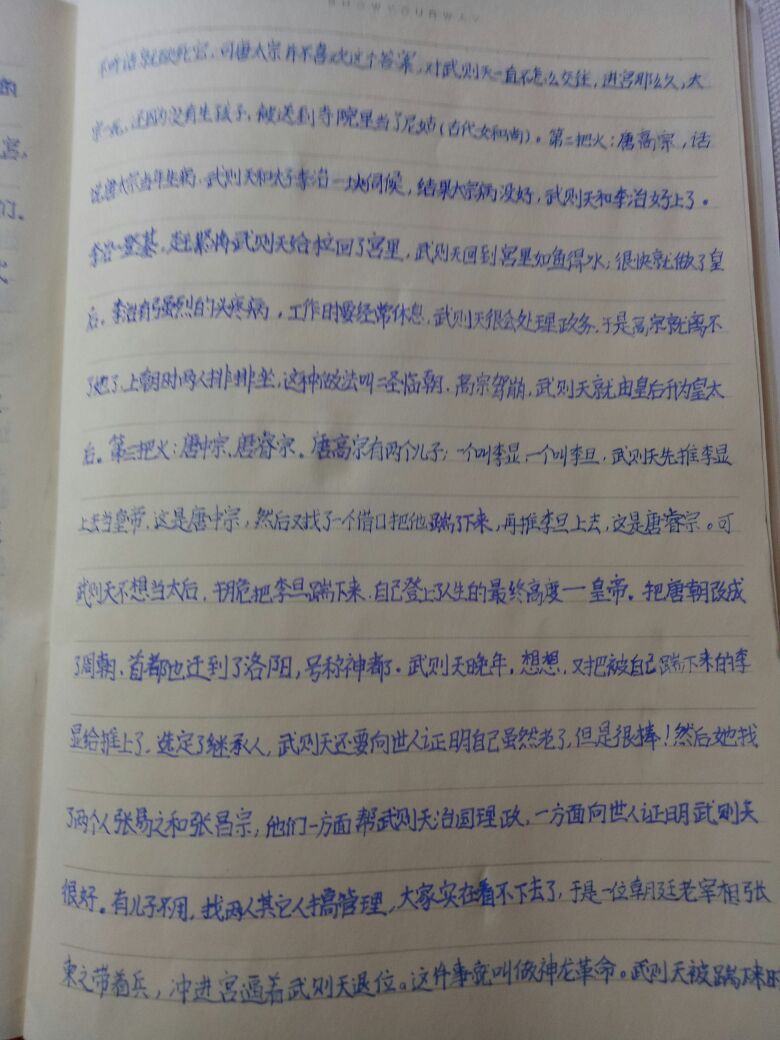 SHOWYOURWAY
不听话就砍死它，可唐太宗并不喜欢这个答案，对武则天一直不怎么交往，进宫那么久，太
宗一死，还因为没有生孩子，被送到寺院里当了尼姑(古代女和尚)。第二把火：唐高宗，话
说唐太宗当年生病，武则天和太子李治一块伺候，结果太宗病没好，武则天和李治好上了。
李治一登基，赶紧将武则天给拉回了宫里，武则天回到宫里如鱼得水，很快就做了皇
后。李治有强烈的头疼病，工作时要经常休息，武则天很会处理政务，于是高宗就离不
了她了，上朝时两人排排坐，这种做法叫二圣临朝，高宗驾崩，武则天就由皇后升为皇太
后。第三把火：唐中宗、唐睿宗。唐高宗有两个儿子，一个叫李显，一个叫李旦，武则天先推李显
上去当皇帝，这是唐中宗，然后又找了一个借口把他踹了下来，再推李旦上去，这是唐睿宗。可
武则天不想当太后，把李旦踹下来，自己登上了人生的最终高度一皇帝。把唐朝改成
了周朝，首都也迁到了洛阳，号称神都了。武则天晚年，想想，又把被自己踹下来的李
显给推上了，选定了继承人，武则天还要向世人证明自己虽然老了，但是很棒！然后她找
了两个人张易之和张昌宗，他们一方面帮武则天治国理政，一方面向世人证明武则天
很好。有儿子不用，找两人其它人搞管理，大家实在看不下去了，于是一位朝廷老宰相张
柬之带着兵，冲进宫逼着武则天退位。这件事就叫做神龙革命。武则天被踹下来时
的
宫，
们。